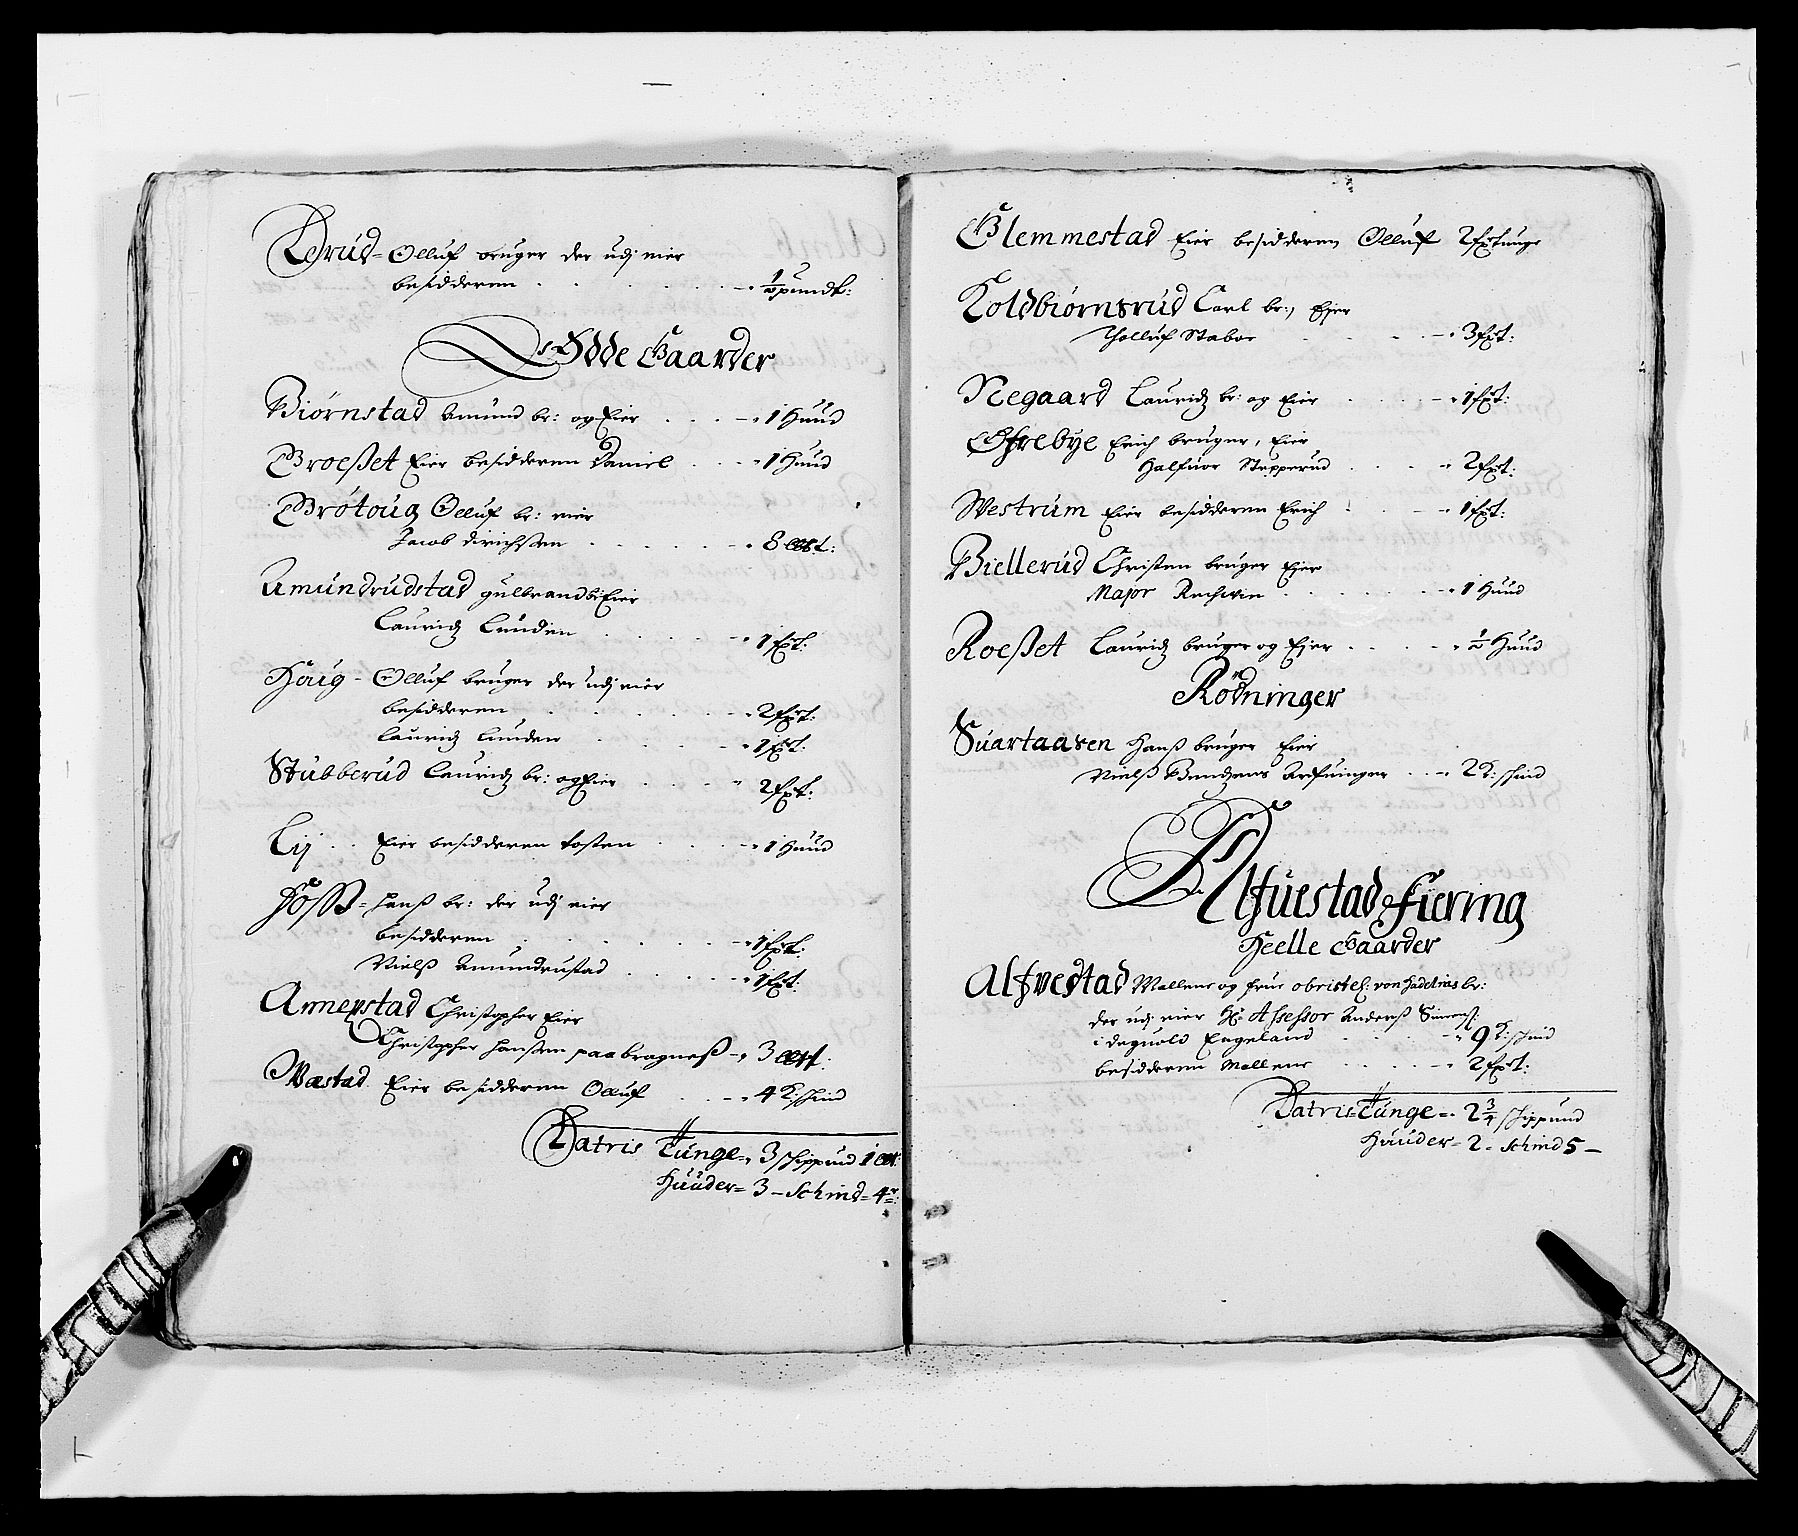 Drud- Olluf bruger der udj eier
besidderen - - 1/2 pundt:
Ødde Gaarder
Biørnstad Amund br: og Eier - - 1 Huud
Broeßet Eier besidderen Daniel - - 1 Huud
Brøtoug Olluf br: eier
Jacob dirichssen - - 8
Amundrudstad gulbrand br Eier
Lauridz Lunden - - 1 fxt:
Houg - Olluf bruger der udj eier
besidderen - - 2 fxt:
lauridz lunden - - 1 fxt:
Stubberud lauridz br: og Eier - - 2 fxt:
Lij - - Eier besidderen tosten - - 1 Huud
hanß br: der udj eier
besidderen - - 1 fxt:
Nielß Amundrustad - - 1 fxt:
Annexstad Christopher Eier
Christopher hanssen paa bragneß - 3
Wæstad Eier besidderen Olluf - - 4 K: schind
Latris Tunge - 3 schippund 1
Huuder = 3 - Schind = 4
Glemmestad Eier besidderen Olluf 2 fxtunge
Koldbiørnsrud Carl br:, Ejer
Tholluf Stabor - - 3 fxt:
Negaard Lauridz br: og Eier - - 1 fxt:
Øfrebÿe Erich bruger, Eier
Halfuor Stepperud - - 2 fxt:
Westrum Eier besidderen Erich - - 1 fxt:
Biellerud Christen bruger Ejer
Major - - 1 Huud
Roeßet Lauridz bruger og Ejer - - 1/2 Huud
Rødninger
Suartaasen Hanß bruger Eier
Nielß Bendzens Arfuinger - - 2 K: schind
Alfuestad Fiering
Heelle Gaarder
Alfvestad Mallene og frue obristel: von br:
der udj eier Hr: Assessor Anderß Simens:
i Engeland - - 9 K: schind
besidderen Mallene - - 2 fxt:
Latris Tunge - 2 3/4 schippund
Huuder = 2 - Schind 5 -